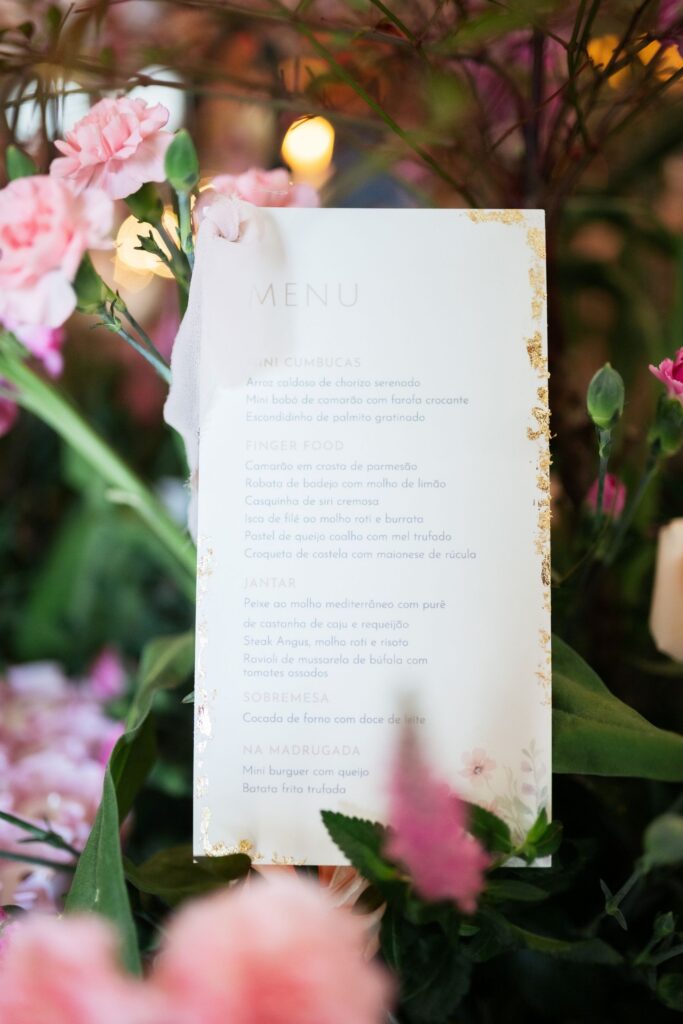 MENU
MINI CUMBUCAS
Arroz caldoso de chorizo serenado
Mini bobó de camarão com farofa crocante
Escondidinho de palmito gratinado
FINGER FOOD
Camarão em crosta de parmesão
Robata de badejo com molho de limão
Casquinha de siri cremosa
Isca de filé ao molho roti e burrata
Pastel de queijo coalho com mel trufado
Croqueta de costela com maionese de rúcula
JANTAR
Peixe ao molho mediterrâneo com purê
de castanha de caju e requeijão
Steak Angus, molho roti e risoto
Ravioli de mussarela de búfala com
tomates assados
SOBREMESA
Cocada de forno com doce de leite
NA MADRUGADA
Mini burguer com queijo
Batata frita trufada